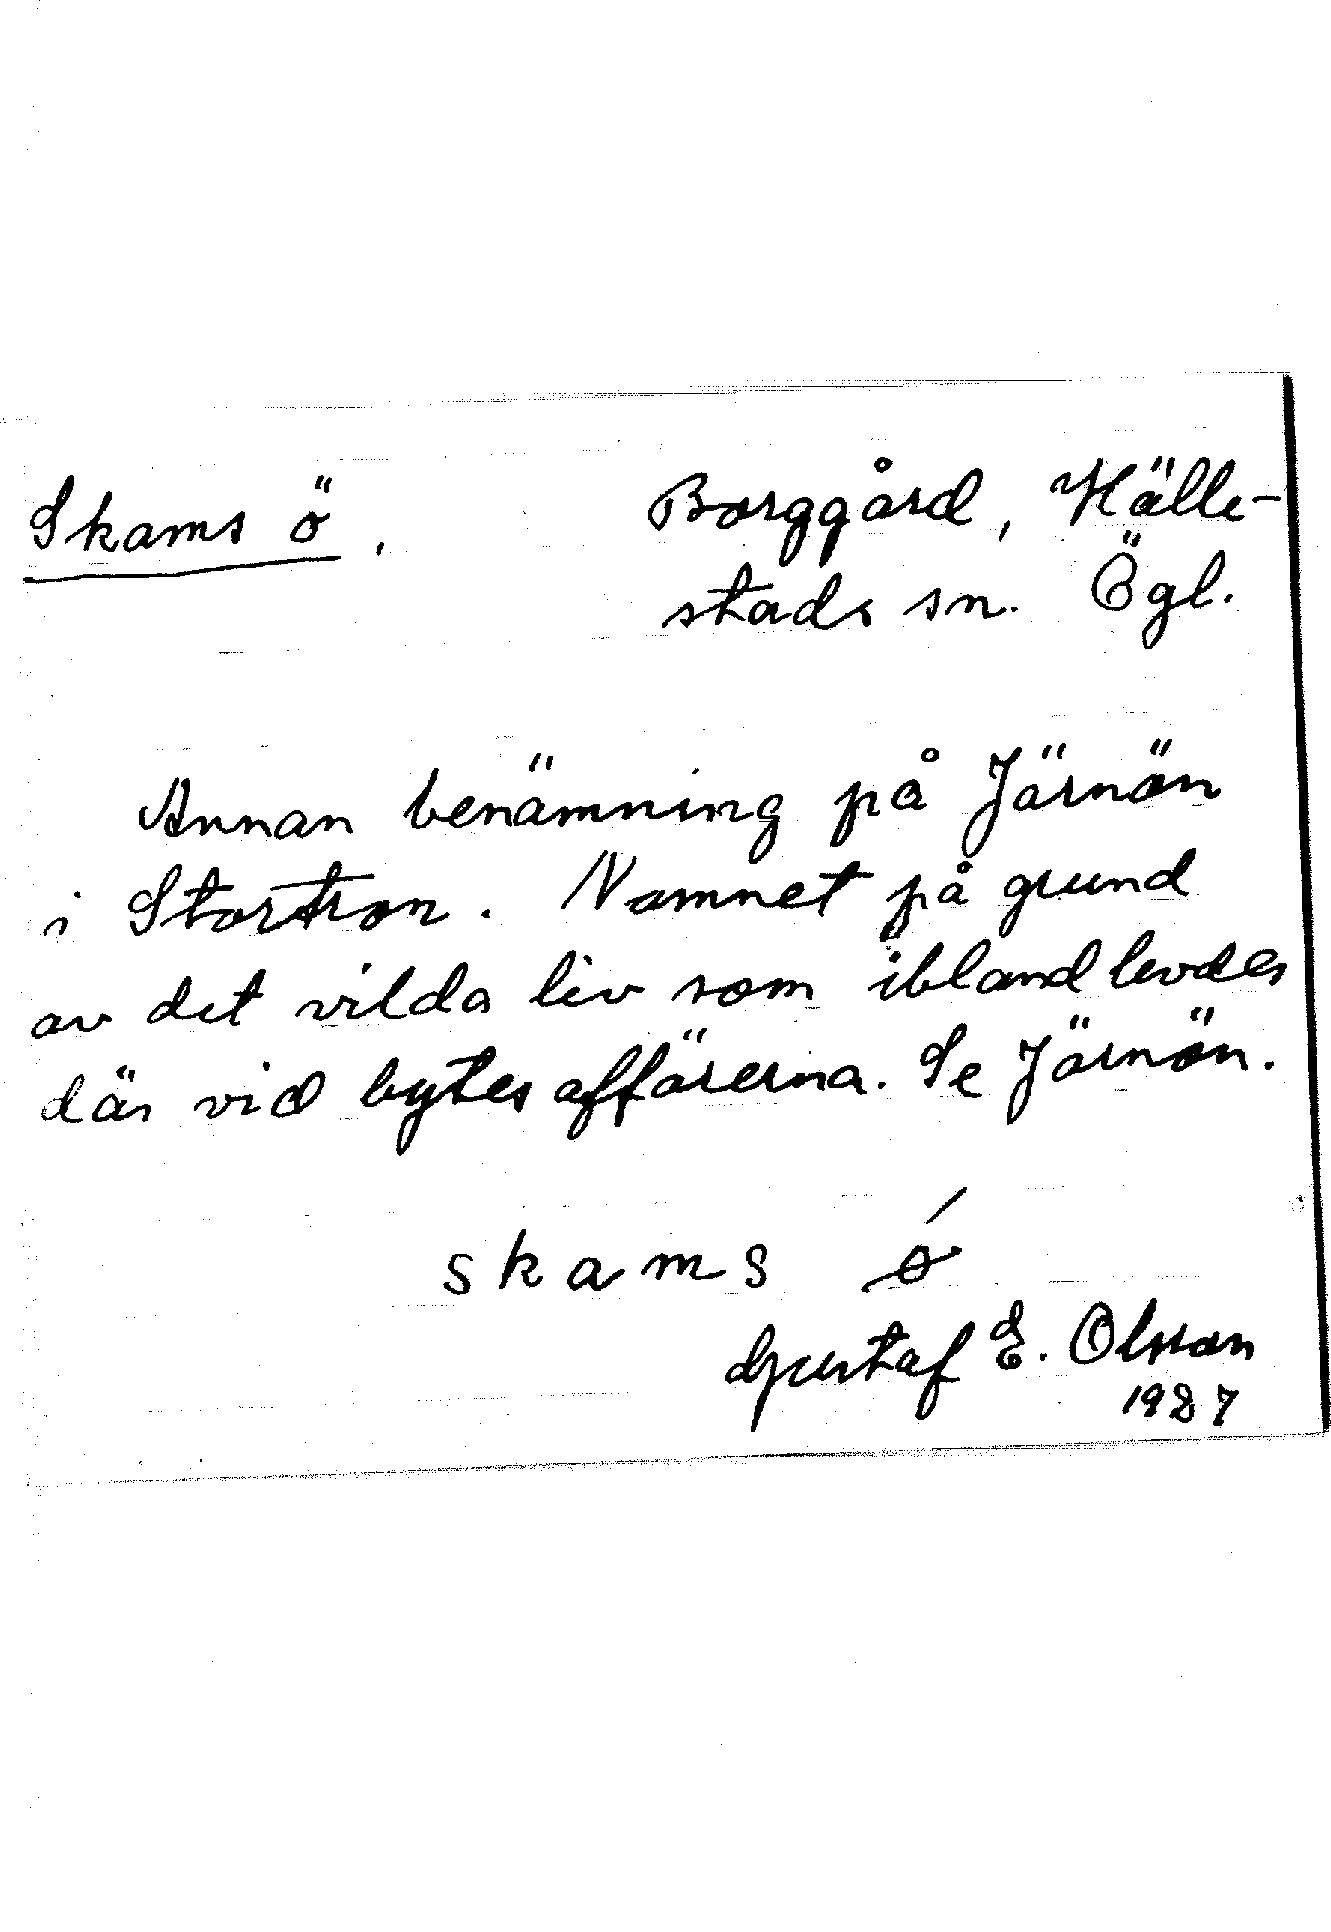 Skams ö. Borggård, Hälle-
stads sn. Ögl.
Annan benämning på Järnön
i Stortron. Namnet på grund
av det vilda liv som ibland levdes
där vid bytesaffärerna. Se Järnön.
skams ǿ
Gustaf E. Olsson
1987